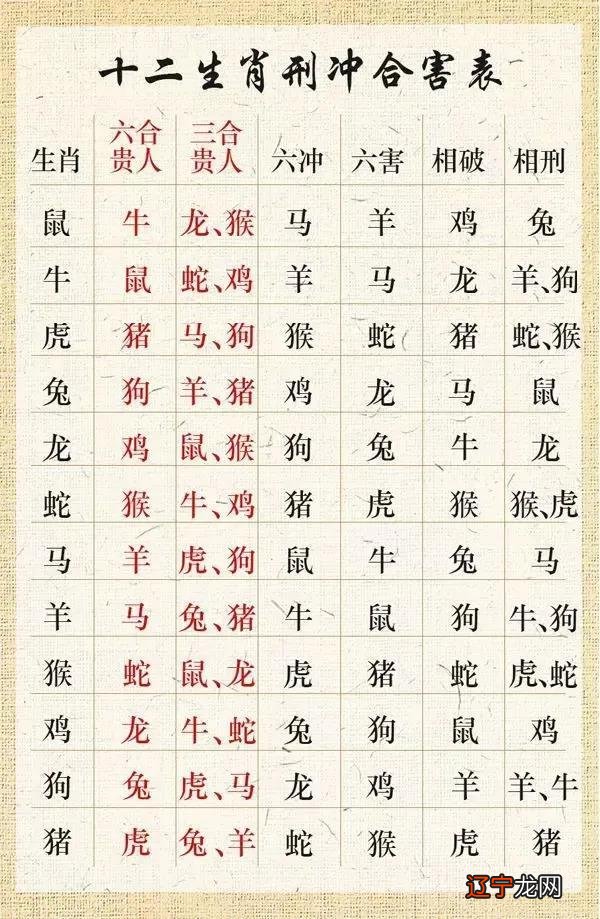 十二生肖刑冲合害表
生肖 六合贵人 三合贵人 六冲 六害 相破 相刑
鼠 牛 龙、猴 马 羊 鸡 兔
牛 鼠 蛇、鸡 羊 马 龙 羊、狗
虎 猪 马、狗 猴 蛇 猪 蛇、猴
兔 狗 羊、猪 鸡 龙 马 鼠
龙 鸡 鼠、猴 狗 兔 牛 龙
蛇 猴 牛、鸡 猪 虎 猴 猴、虎
马 羊 虎、狗 鼠 牛 兔 马
羊 马 兔、猪 牛 鼠 狗 牛、狗
猴 蛇 鼠、龙 虎 猪 蛇 虎、蛇
鸡 龙 牛、蛇 兔 狗 鼠 鸡
狗 兔 虎、马 龙 鸡 羊 羊、牛
猪 虎 兔、羊 蛇 猴 虎 猪
辽宁龙网